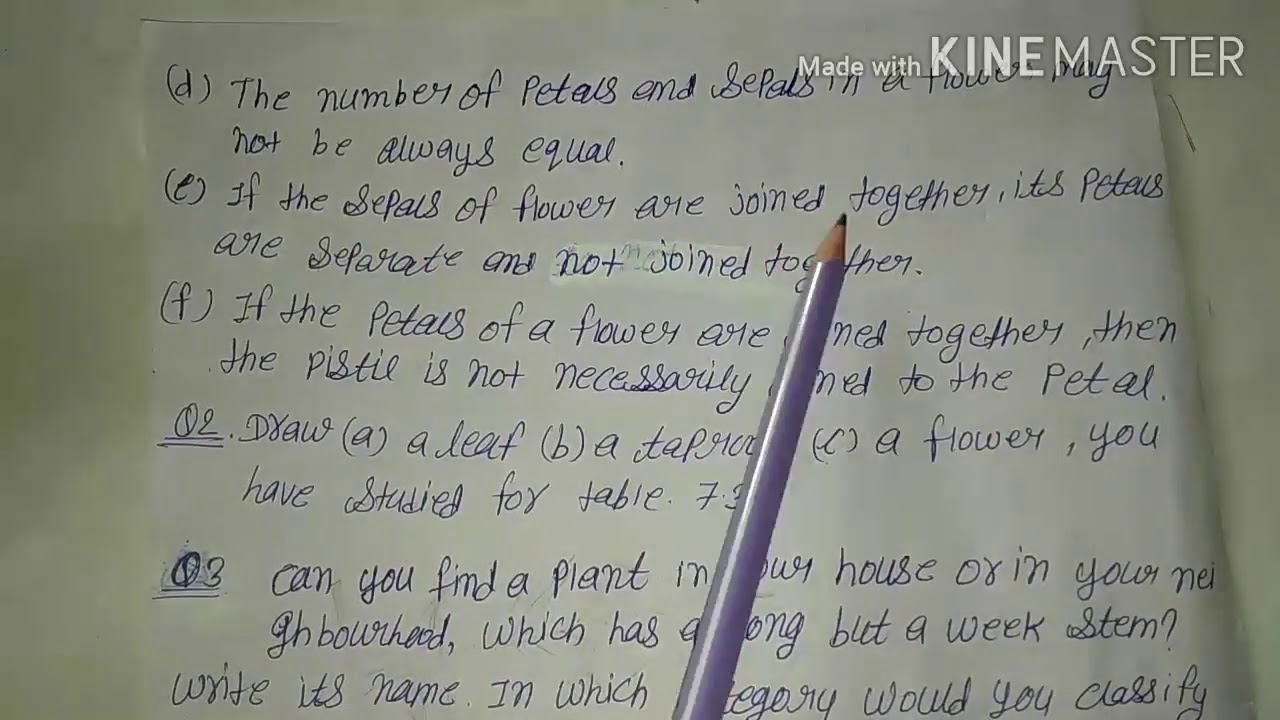 Made with KINEMASTER
(d) The number of Petals and Sepals in a flower may
not be always equal.
(e) If the sepals of flower are joined together, its petals
are separate and not joined together.
(f) If the Petals of a flower are ned together, then
the pistil is not necessarily ned to the Petal.
Q2. Draw (a) a leaf (b) a tapro (c) a flower, you
have studied for table. 7.3
Q3 can you find a plant in our house or in your nei
ghbourhood, which has a ong but a week stem?
write its name. In which tegory would you classify